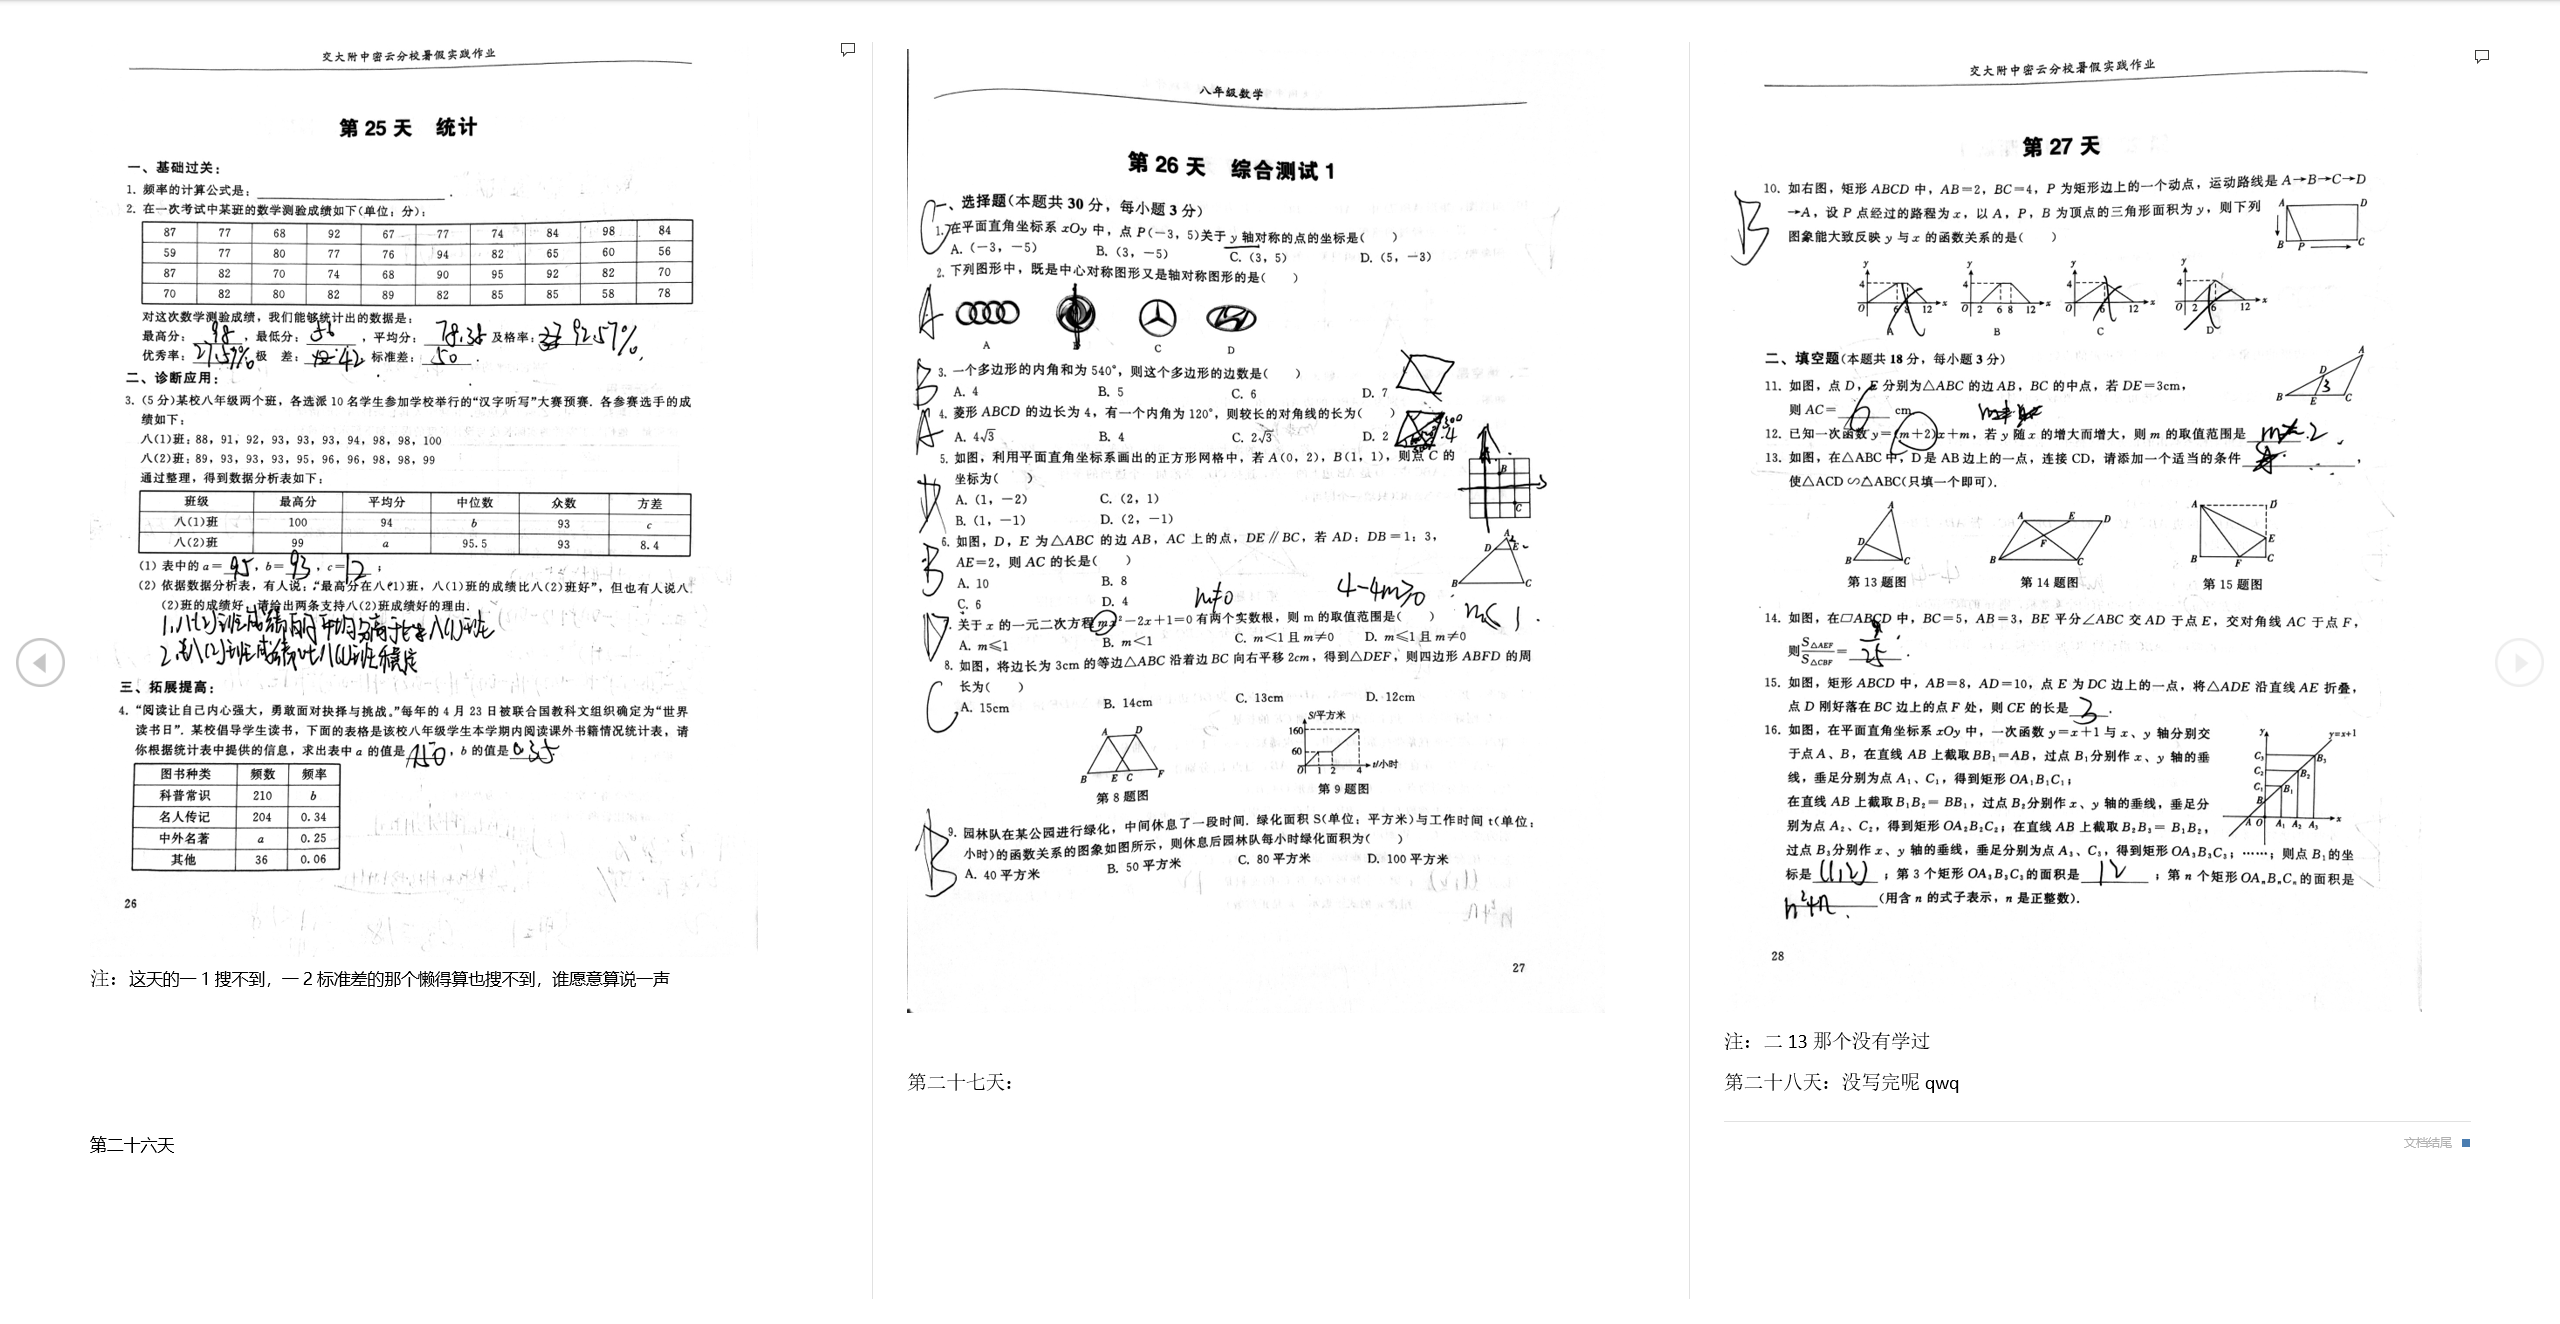 交大附中密云分校暑假实践作业
第 25 天 统计
一、基础过关：
1. 频率的计算公式是：
2. 在一次考试中某班的数学测验成绩如下(单位：分)：
87 77 68 92 67 77 74 84 98 84
59 77 80 77 76 94 82 65 60 56
87 82 70 74 68 90 95 92 82 70
70 82 80 82 89 82 85 85 58 78
对这次数学测验成绩，我们能够统计出的数据是：
最高分：98，最低分：56，平均分：78.35 及格率：92.57%
优秀率：27.57% 极 差：42 标准差：50.
二、诊断应用：
3. (5 分)某校八年级两个班，各选派 10 名学生参加学校举行的“汉字听写”大赛预赛．各参赛选手的成
绩如下：
八(1)班：88，91，92，93，93，93，94，98，98，100
八(2)班：89，93，93，93，95，96，96，98，98，99
通过整理，得到数据分析表如下：
班级 最高分 平均分 中位数 众数 方差
八(1)班 100 94 b 93 c
八(2)班 99 a 95.5 93 8.4
(1) 表中的 a＝95，b＝93，c＝12；
(2) 依据数据分析表，有人说：“最高分在八(1)班，八(1)班的成绩比八(2)班好”，但也有人说八
(2)班的成绩好，请给出两条支持八(2)班成绩好的理由．
1.八(2)班成绩的平均分高于八(1)班
2.八(2)班成绩比八(1)班稳定
三、拓展提高：
4. “阅读让自己内心强大，勇敢面对抉择与挑战。”每年的 4 月 23 日被联合国教科文组织确定为“世界
读书日”．某校倡导学生读书，下面的表格是该校八年级学生本学期内阅读课外书籍情况统计表，请
你根据统计表中提供的信息，求出表中 a 的值是 150，b 的值是 0.35
图书种类 频数 频率
科普常识 210 b
名人传记 204 0.34
中外名著 a 0.25
其他 36 0.06
26
注：这天的一 1 搜不到，一 2 标准差的那个懒得算也搜不到，谁愿意算说一声
第二十六天
八年级数学
第 26 天 综合测试 1
一、选择题(本题共 30 分，每小题 3 分)
C
1. 在平面直角坐标系 xOy 中，点 P(－3，5)关于 y 轴对称的点的坐标是( )
A. (－3，－5) B. (3，－5) C. (3，5) D. (5，－3)
2. 下列图形中，既是中心对称图形又是轴对称图形的是( )
A
A B C D
B
3. 一个多边形的内角和为 540°，则这个多边形的边数是( )
A. 4 B. 5 C. 6 D. 7
A
4. 菱形 ABCD 的边长为 4，有一个内角为 120°，则较长的对角线的长为( )
A. 4√3 B. 4 C. 2√3 D. 2
5. 如图，利用平面直角坐标系画出的正方形网格中，若 A(0，2)，B(1，1)，则点 C 的
坐标为( )
D
A. (1，－2) C. (2，1)
B. (1，－1) D. (2，－1)
6. 如图，D，E 为△ABC 的边 AB，AC 上的点，DE∥BC，若 AD：DB＝1：3，
AE＝2，则 AC 的长是( )
B
A. 10 B. 8
C. 6 D. 4
m≠0 4-4m≥0
. 关于 x 的一元二次方程 mx²－2x＋1＝0 有两个实数根，则 m 的取值范围是( )
D
A. m⩽1 B. m＜1 C. m＜1 且 m≠0 D. m⩽1 且 m≠0
8. 如图，将边长为 3cm 的等边△ABC 沿着边 BC 向右平移 2cm，得到△DEF，则四边形 ABFD 的周
长为( )
C
A. 15cm B. 14cm C. 13cm D. 12cm
A D B E C F
第 8 题图
S/平方米 160 60 O 1 2 4 t/小时
第 9 题图
B
9. 园林队在某公园进行绿化，中间休息了一段时间．绿化面积 S(单位：平方米)与工作时间 t(单位：
小时)的函数关系的图象如图所示，则休息后园林队每小时绿化面积为( )
A. 40 平方米 B. 50 平方米 C. 80 平方米 D. 100 平方米
27
第二十七天：
交大附中密云分校暑假实践作业
第 27 天
B
10. 如右图，矩形 ABCD 中，AB＝2，BC＝4，P 为矩形边上的一个动点，运动路线是 A→B→C→D
→A，设 P 点经过的路程为 x，以 A，P，B 为顶点的三角形面积为 y，则下列
图象能大致反映 y 与 x 的函数关系的是( )
A B C D
二、填空题(本题共 18 分，每小题 3 分)
11. 如图，点 D，E 分别为△ABC 的边 AB，BC 的中点，若 DE＝3cm，
则 AC＝6 cm
12. 已知一次函数 y＝(m＋2)x＋m，若 y 随 x 的增大而增大，则 m 的取值范围是
13. 如图，在△ABC 中，D 是 AB 边上的一点，连接 CD，请添加一个适当的条件
使△ACD∽△ABC(只填一个即可)．
第 13 题图 第 14 题图 第 15 题图
14. 如图，在▱ABCD 中，BC＝5，AB＝3，BE 平分∠ABC 交 AD 于点 E，交对角线 AC 于点 F，
则S△AEF/S△CBF＝9/25．
15. 如图，矩形 ABCD 中，AB＝8，AD＝10，点 E 为 DC 边上的一点，将△ADE 沿直线 AE 折叠，
点 D 刚好落在 BC 边上的点 F 处，则 CE 的长是 3．
16. 如图，在平面直角坐标系 xOy 中，一次函数 y＝x＋1 与 x、y 轴分别交
于点 A、B，在直线 AB 上截取 BB₁＝AB，过点 B₁分别作 x、y 轴的垂
线，垂足分别为点 A₁、C₁，得到矩形 OA₁B₁C₁；
在直线 AB 上截取 B₁B₂＝ BB₁，过点 B₂分别作 x、y 轴的垂线，垂足分
别为点 A₂、C₂，得到矩形 OA₂B₂C₂；在直线 AB 上截取 B₂B₃＝ B₁B₂，
过点 B₃分别作 x、y 轴的垂线，垂足分别为点 A₃、C₃，得到矩形 OA₃B₃C₃；……；则点 B₁的坐
标是(1,2)；第 3 个矩形 OA₃B₃C₃的面积是 12；第 n 个矩形 OAₙBₙCₙ的面积是
n²+n (用含 n 的式子表示，n 是正整数)．
28
注：二 13 那个没有学过
第二十八天：没写完呢 qwq
文档结尾